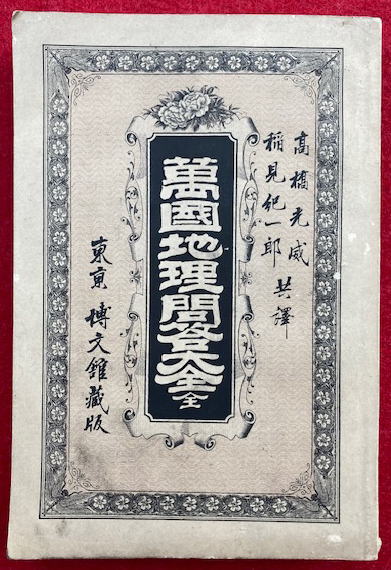 高橋光威
稲見紀一郎 共譯
萬國地理問答大全 全
東京 博文館藏版